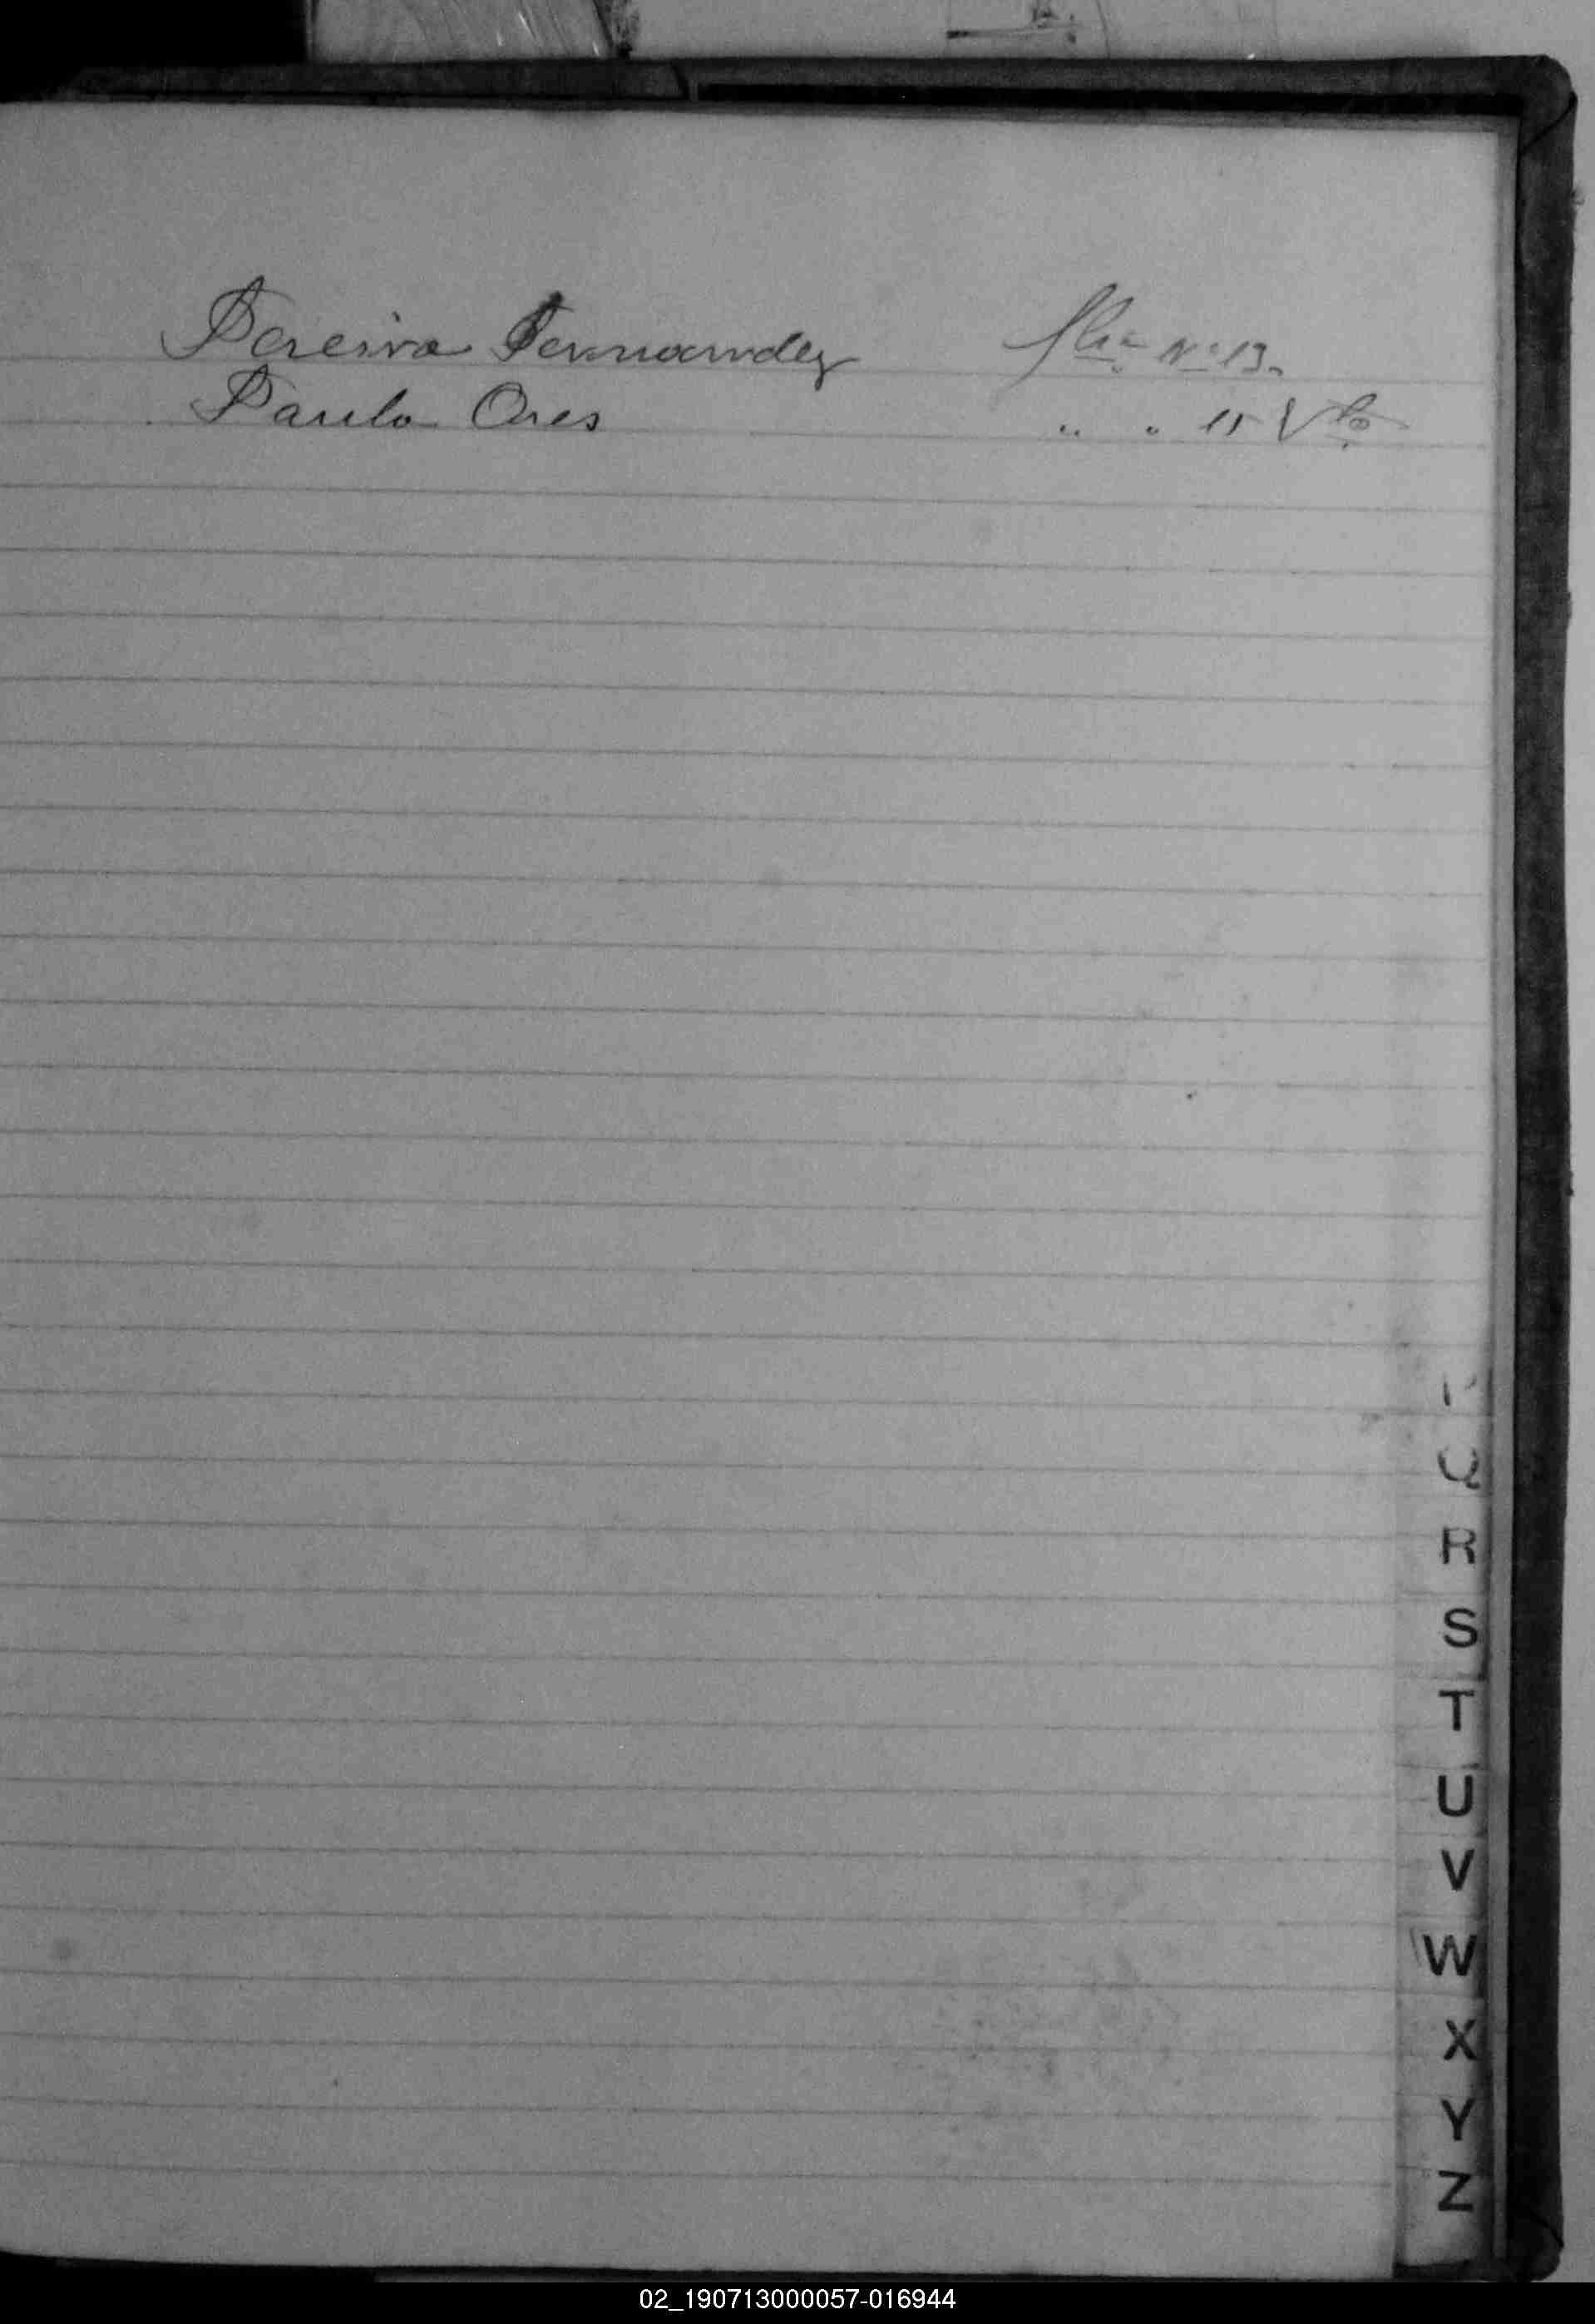 Pereira Fernandez Fls. Nº 13.
Paulo Ores " " 11 Vto
P
Q
R
S
T
U
V
W
X
Y
Z
02_190713000057-016944